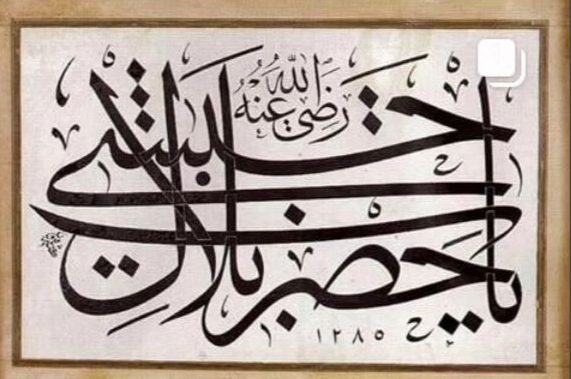 يا حضرت بلال
حبشي
رضي الله عنه
١٢٨٥